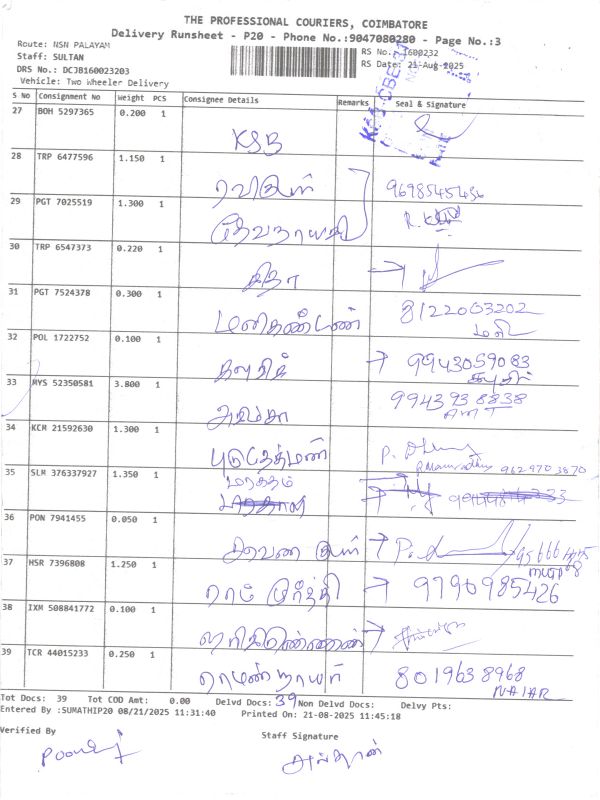 THE PROFESSIONAL COURIERS, COIMBATORE
Delivery Runsheet - P20 - Phone No.:9047080280 - Page No.:3
Route: NSN PALAYAM
RS No.: 1600232
Staff: SULTAN
RS Date: 21-Aug-2025
DRS No.: DCJB160023203
Vehicle: Two Wheeler Delivery
S No Consignment No Weight PCS Consignee Details Remarks Seal & Signature
27 BOH 5297365 0.200 1 KSB
28 TRP 6477596 1.150 1 ரவிகுமார் 9698545456
29 PGT 7025519 1.300 1 தேவநாயகி
30 TRP 6547373 0.220 1 கீதா
31 PGT 7524378 0.300 1 மணிகண்டன் 8122003202
மணி
32 POL 1722752 0.100 1 → 9943059083
33 MYS 52350581 3.800 1 9943938838
34 KCM 21592630 1.300 1 P.
962 970 3870
35 SLM 376337927 1.350 1 மரகதம்
36 PON 7941455 0.050 1 சரவண குமார் →
37 HSR 7396808 1.250 1 ராம் மூர்த்தி → 9790985426
38 IXM 508841772 0.100 1 ஹரிகிருஷ்ணன் →
39 TCR 44015233 0.250 1 ராமன் நாயர் 8019638968
NAIAR
Tot Docs: 39 Tot COD Amt: 0.00 Delvd Docs: 39 Non Delvd Docs: Delvy Pts:
Entered By :SUMATHIP20 08/21/2025 11:31:40 Printed On: 21-08-2025 11:45:18
Verified By
Staff Signature
சுல்தான்